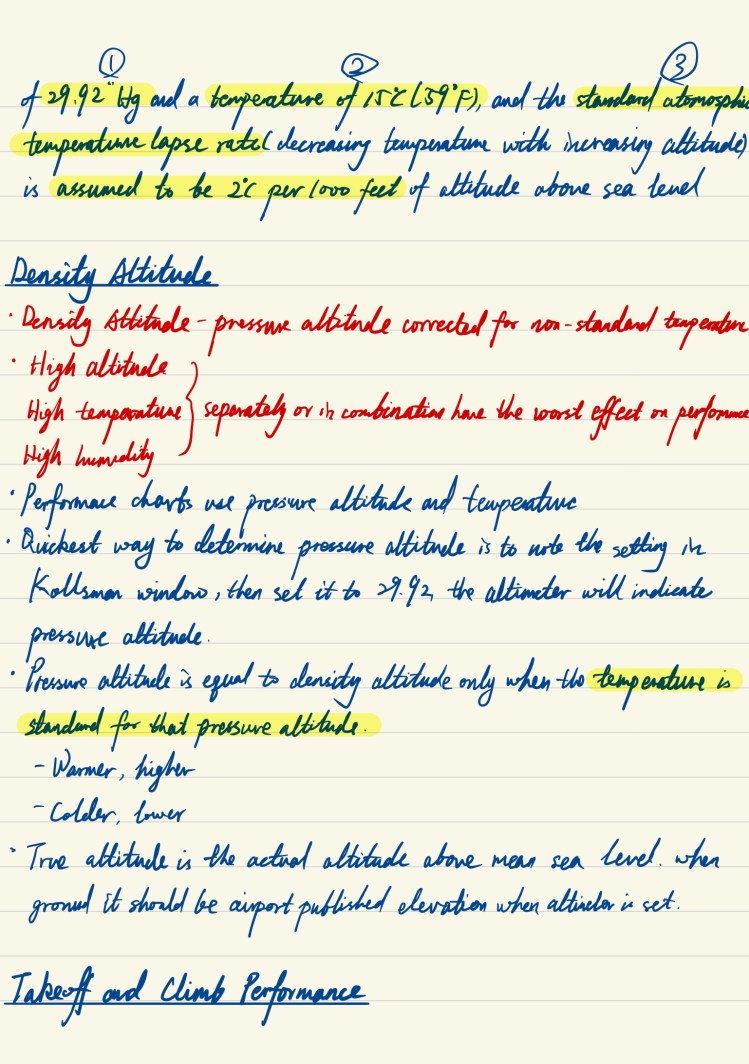 ① ② ③
of 29.92"Hg and a temperature of 15°C (59°F), and the standard atomosphic
temperature lapse rate (decreasing temperature with increasing altitude)
is assumed to be 2°C per 1000 feet of altitude above sea level
Density Altitude
· Density Altitude - pressure altitude corrected for non-standard temperature
· High altitude
High temperature } separately or in combination have the worst effect on performance
High humidity
· Performace charts use pressure altitude and temperature
· Quickest way to determine pressure altitude is to note the setting in
Kollsman window, then set it to 29.92, the altimeter will indicate
pressure altitude.
· Pressure altitude is equal to density altitude only when the temperature is
standard for that pressure altitude.
- Warmer, higher
- Colder, lower
· True altitude is the actual altitude above mean sea level. when
ground it should be airport published elevation when is set.
Takeoff and Climb Performance